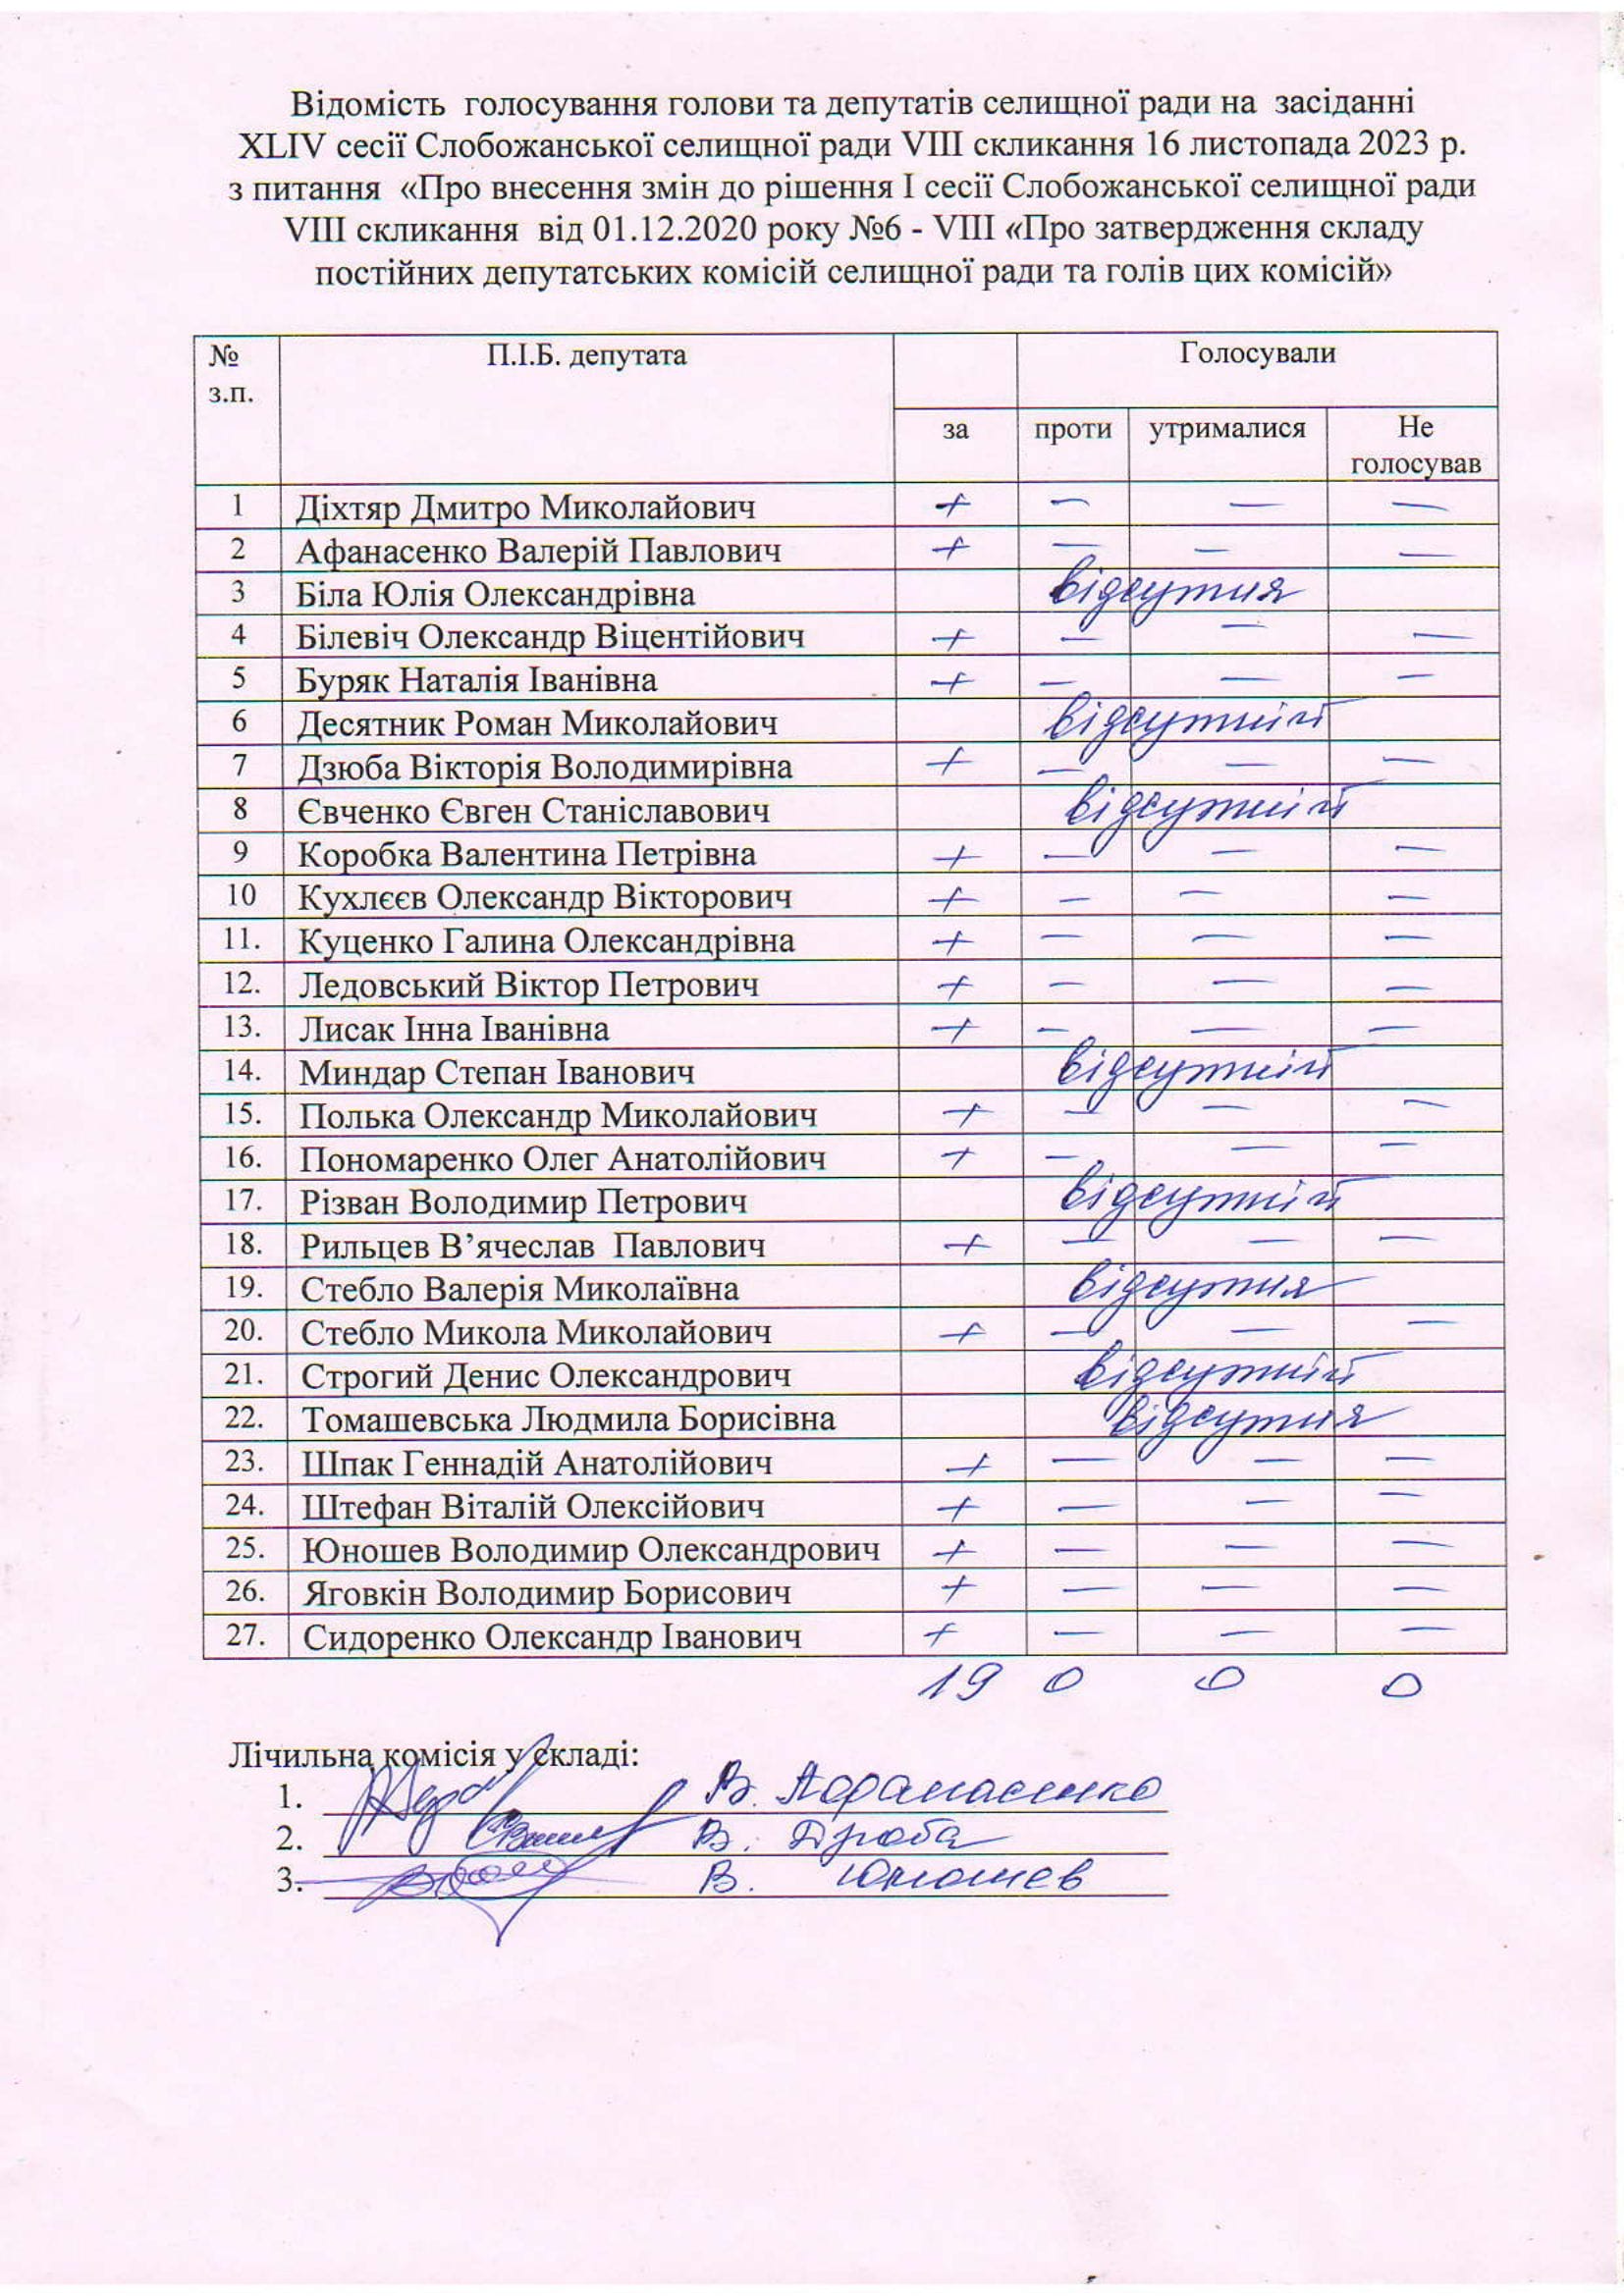 Відомість голосування голови та депутатів селищної ради на засіданні
XLIV сесії Слобожанської селищної ради VIII скликання 16 листопада 2023 р.
з питання «Про внесення змін до рішення І сесії Слобожанської селищної ради
VIII скликання від 01.12.2020 року №6 - VIII «Про затвердження складу
постійних депутатських комісій селищної ради та голів цих комісій»
№ з.п. П.І.Б. депутата Голосували
за проти утрималися Не голосував
1 Діхтяр Дмитро Миколайович + — — —
2 Афанасенко Валерій Павлович + — — —
3 Біла Юлія Олександрівна відсутня
4 Білевіч Олександр Віцентійович + — — —
5 Буряк Наталія Іванівна + — — —
6 Десятник Роман Миколайович відсутній
7 Дзюба Вікторія Володимирівна + — — —
8 Євченко Євген Станіславович відсутній
9 Коробка Валентина Петрівна + — — —
10 Кухлєєв Олександр Вікторович + — — —
11. Куценко Галина Олександрівна + — — —
12. Ледовський Віктор Петрович + — — —
13. Лисак Інна Іванівна + — — —
14. Миндар Степан Іванович відсутній
15. Полька Олександр Миколайович + — — —
16. Пономаренко Олег Анатолійович + — — —
17. Різван Володимир Петрович відсутній
18. Рильцев В’ячеслав Павлович + — — —
19. Стебло Валерія Миколаївна відсутня
20. Стебло Микола Миколайович + — — —
21. Строгий Денис Олександрович відсутній
22. Томашевська Людмила Борисівна відсутня
23. Шпак Геннадій Анатолійович + — — —
24. Штефан Віталій Олексійович + — — —
25. Юношев Володимир Олександрович + — — —
26. Яговкін Володимир Борисович + — — —
27. Сидоренко Олександр Іванович + — — —
19 0 0 0
Лічильна комісія у складі:
1. В. Афанасенко
2. В. Дзюба
3. В. Юношев